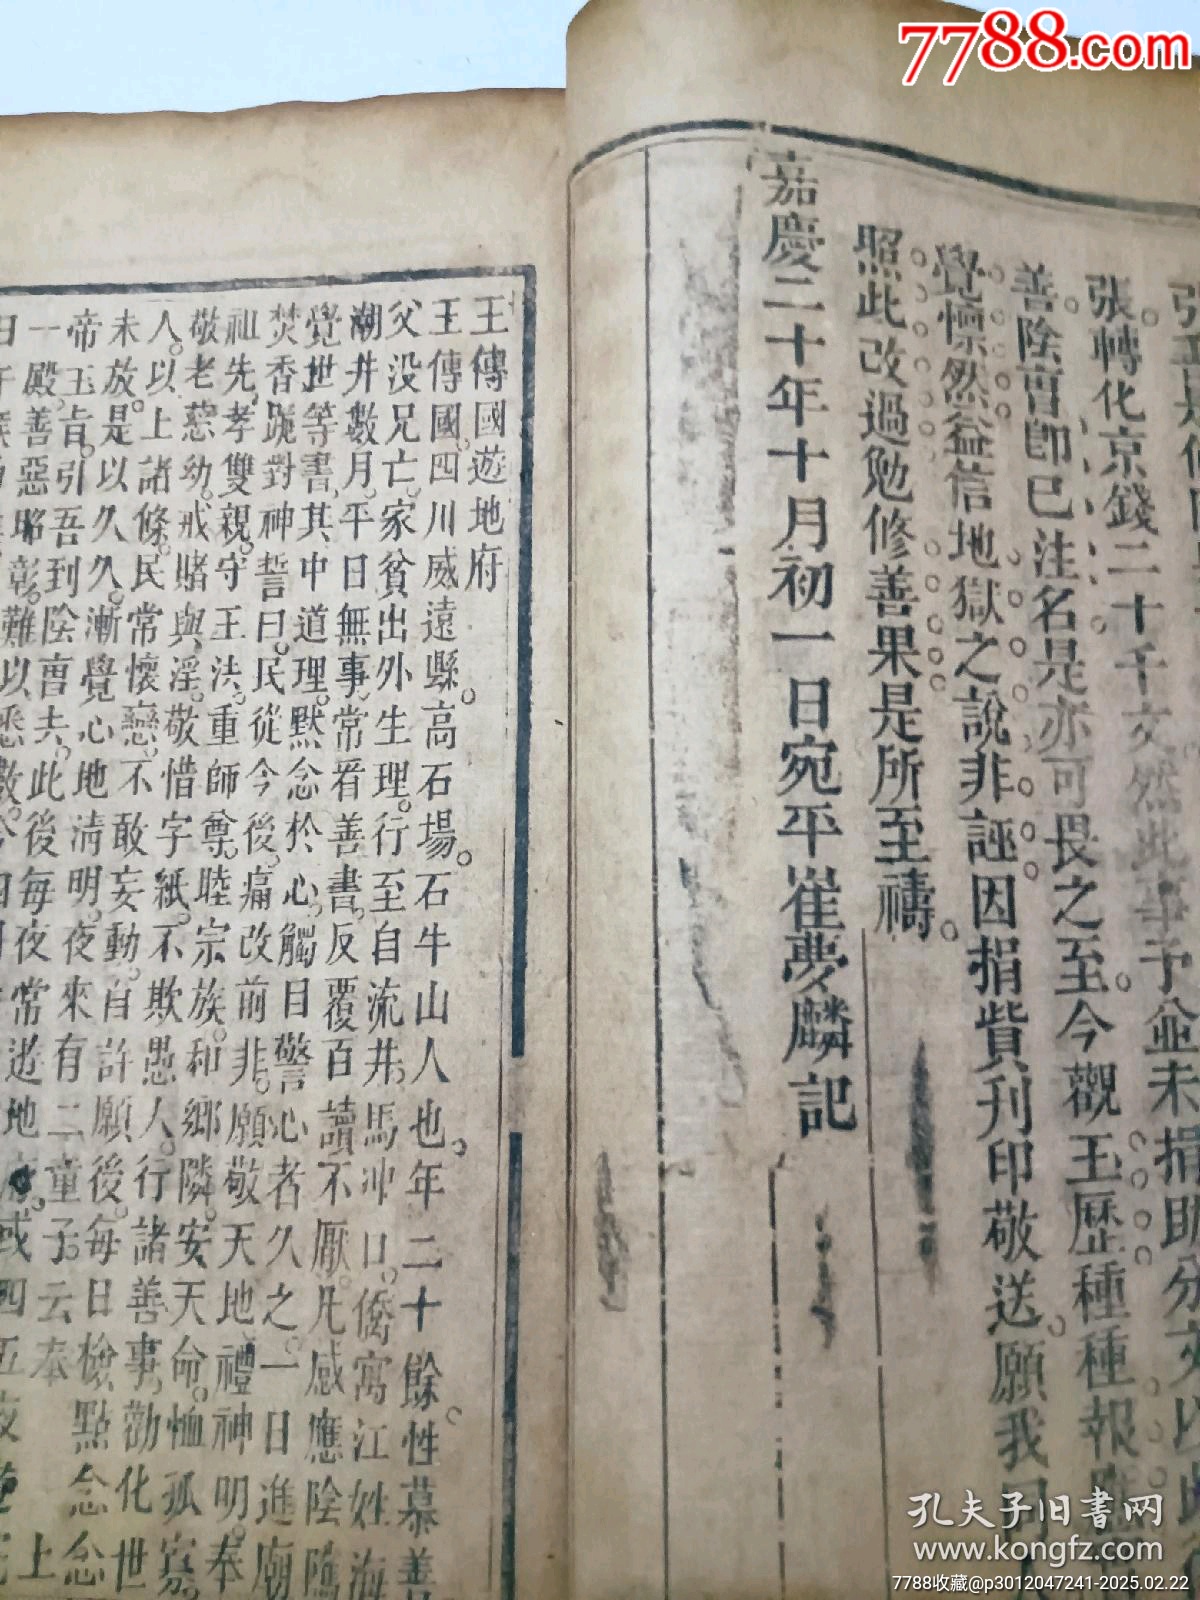 7788.com
張轉化京錢二十千文然此事予並未捐助分文以此
善陰曹即已注名是亦可畏之至今觀王歷種種報
覺懍然益信地獄之說非誣因捐貲刊印敬送願我同
照此改過勉修善果是所至禱
嘉慶二十年十月初一日宛平崔夢麟記
王傳國遊地府
王傳國四川威遠縣高石場石牛山人也年二十餘性慕善
父没兄亡家貧出外生理行至自流井馬冲口僑寓江姓海
潮井數月平日無事常看善書反覆百讀不厭凡感應陰隲
覺世等書其中道理默念於心觸目警心者久之一日進廟
焚香跪對神誓曰民從今後痛改前非願敬天地禮神明奉
祖先孝雙親守王法重師尊睦宗族和鄉隣安天命恤孤寡
敬老慈幼戒賭與淫敬惜字紙不欺愚人行諸善事勸化世
人以上諸條民常懷戀不敢妄動自許願後每日檢點念念
未放是以久久漸覺心地清明夜來有二童子云奉 上
帝玉旨引吾到陰曹去此後每夜常遊地府或四五夜
一殿善惡昭彰難以悉數今
孔夫子旧書网
www.kongfz.com
7788收藏@p3012047241-2025.02.22